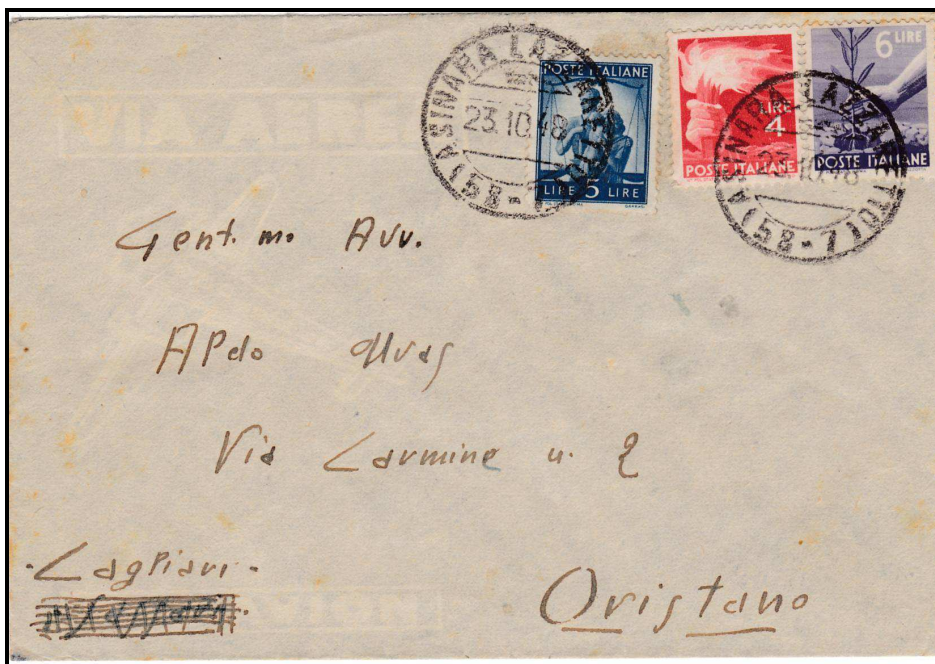 ASINARA LAZZARETTO (58-7)
23.10.48
POSTE ITALIANE
LIRE 5 LIRE
LIRE
4
POSTE ITALIANE
6 LIRE
POSTE ITALIANE
ASINARA LAZZARETTO (58-7)
23.10.48
Gent.mo Avv.
Aldo Uras
Via Carmine n. 2
- Cagliari -
Oristano